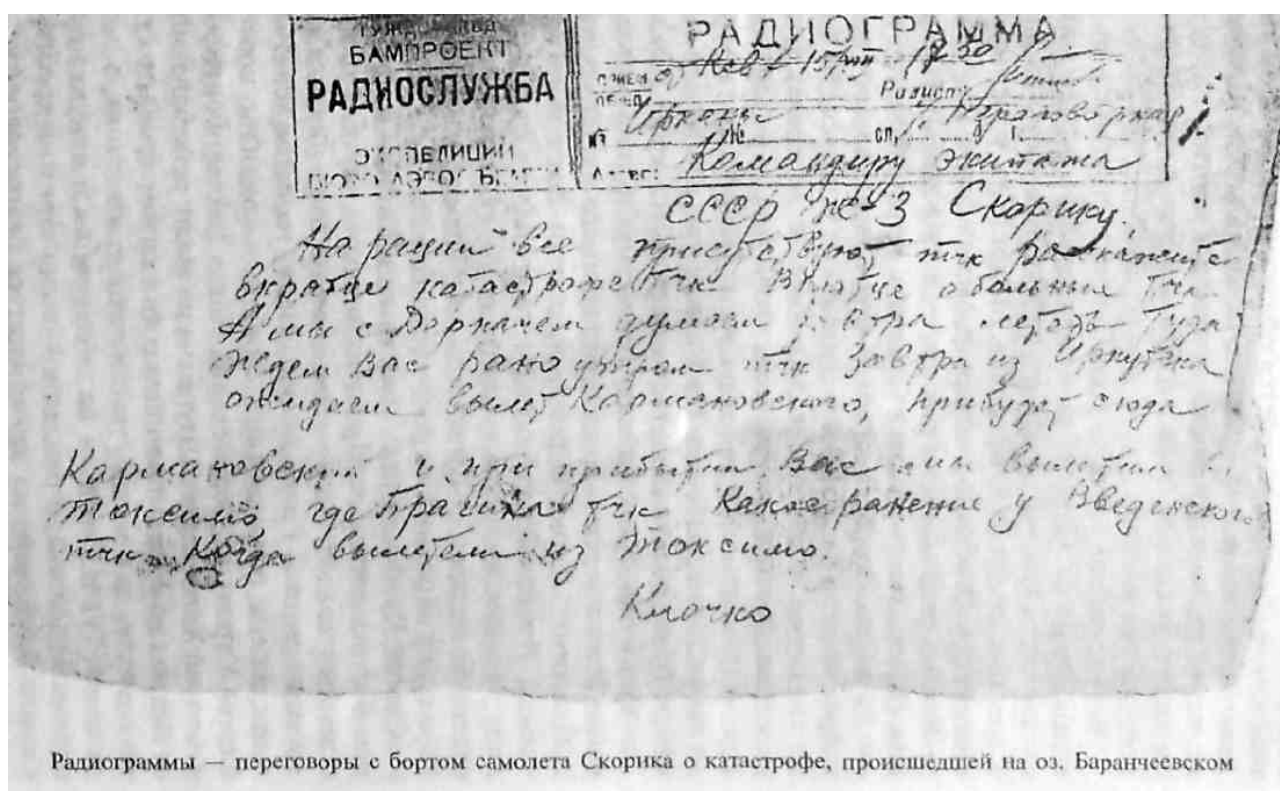 БАМПРОЕКТ
РАДИОСЛУЖБА
ЭКСПЕДИЦИЯ
БЮРО АЭРОСЪЕМКИ
РАДИОГРАММА
15 17 30
Радист
Командиру экипажа
СССР Скорику.
На рации все присутствуют тчк расскажите
вкратце катастрофе тчк Вкратце о больных тчк
А мы с Деркачем думаем завтра лететь туда
ждем Вас рано утром тчк Завтра из Иркутска
ожидаем вылет Кармановского, прибудет сюда
Кармановский и при прибытии Вас мы вылетим в
Токсимо, где тчк Какое ранение у Введенского
тчк Когда вылетели из Токсимо.
Клочко
Радиограммы — переговоры с бортом самолета Скорика о катастрофе, происшедшей на оз. Баранчеевском